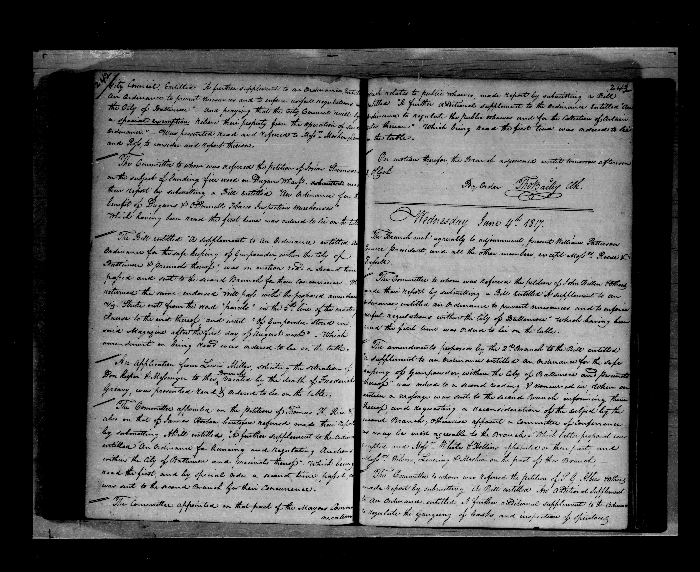 City Council, Entitled "A further supplement to an Ordinance Entitled
An Ordinance to prevent Nuisances and to enforce usefull Regulations in
the City of Baltimore" And praying that the City Council will by
a special exemption release their property from the operation of said
Ordinance" Was presented read and referred to Messrs.
and Ross, to consider and report thereon.
The Committee to whom was referred the petition of
on the subject of landing fire wood on Dugans Wharf, made
their report by submitting a Bill Entitled "An Ordinance for the
benefit of Dugans & O'Donnells Tobacco Inspection Warehouses"
Which having been read the first time was ordered to lie on the table
The Bill entitled "A supplement to An Ordinance entitled an
Ordinance for the safe keeping of Gunpowder within the City of
Baltimore & precincts thereof," was on motion read a second time
passed and sent to the second Branch for their concurrence. Who
returned the same endorsed Will pass with the proposed amendment
Viz. Strike out from the word "parcels" in the 5th line of the
clause to the end thereof and insert "of Gunpowder stored in
said Magazine after the first day of August next". Which
amendment on being read was ordered to lie on the table.
An application from Lewis Miller, soliciting the situation of
Door keeper & Messenger to them, vacated by the death of Frederick
Greasy, was presented read & ordered to lie on the table.
The Committee appointed on the petitions of Thomas
also on that of James referred made their report
by submitting A Bill entitled "A further supplement to the Ordinance
entitled An Ordinance for licensing and Regulating Auctions
within the City of Baltimore and precincts thereof." Which being
read the first, and by special order a second time, passed &
was sent to the second Branch for their Concurrence.
The Committee appointed on that part of the Mayors Communication
243
which relates to public wharves, made report by submitting a Bill
entitled "A further additional supplement to the ordinance entitled "An
ordinance to regulate the public wharves and for the collection of certain
rates thereon." Which being read the first time was ordered to lie on
the table.
On motion therefor the Branch adjourned until tomorrow afternoon
oClock.
By Order Thos Bailey Clk.
Wednesday June 4th 1817.
The Branch met agreeably to adjournment present William Patterson
Esquire President and all the other members except Messrs. Reese &
The Committee to whom was referred the petition of John &
made their report by submitting a Bill Entitled A supplement to an
ordinance entitled an Ordinance to prevent nuisances and to enforce
usefull regulations within the City of Baltimore" Which having been
read the first time was ordered to lie on the table.
The amendments proposed by the 2nd Branch to the Bill entitled
"A supplement to an ordinance entitled an ordinance for the safe
keeping of Gunpowder, within the City of Baltimore and precincts
thereof" was ordered to a second reading & nonconcurred in. Where on
motion a message was sent to the second Branch informing them
thereof and Requesting a reconsideration of the subject by the
second Branch; otherwise appoint a Committee of Conference
as may be more agreeable to the Branch. Which letter prepared was
and Messrs. White & Hollins appointed on their part, and
Messrs. Wilson, & on the part of this Branch.
The Committee to whom was referred the petition of & others
made report by submitting a Bill entitled An additional Supplement
to An Ordinance entitled A further additional supplement to the Ordinance
to regulate the gauging of Casks, and inspection of Spirituous